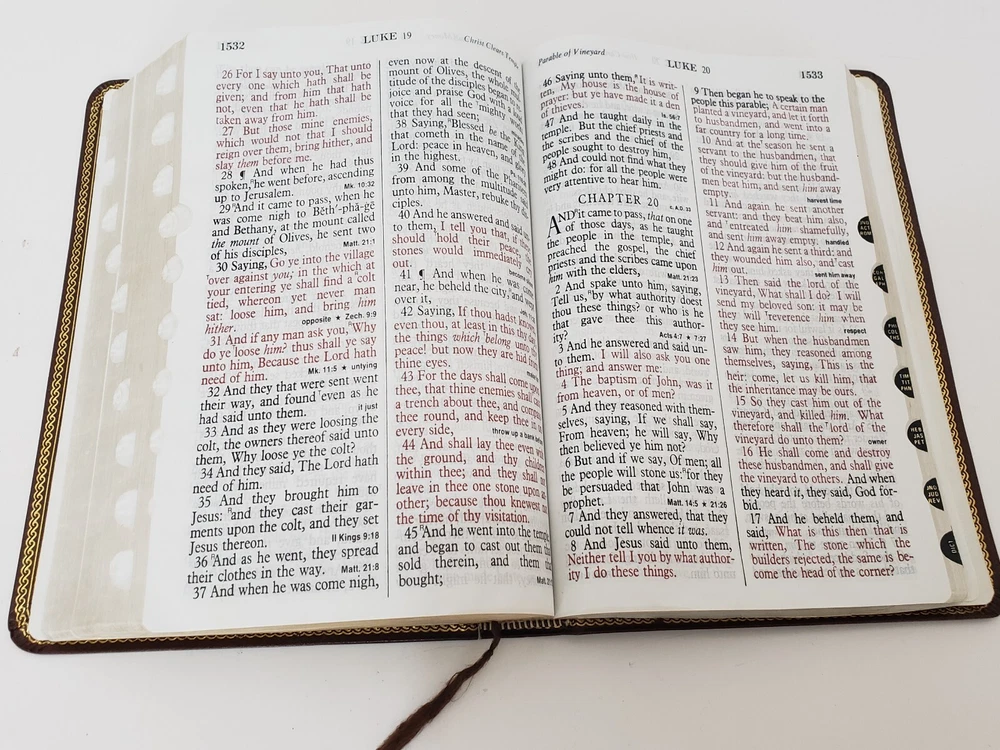 1532
LUKE 19
26 For I say unto you, That unto
every one which hath shall be
given; and from him that hath
not, even that he hath shall be
taken away from him.
27 But those mine enemies,
which would not that I should
reign over them, bring hither, and
slay them before me.
28 ¶ And when he had thus
spoken, he went before, ascending
up to Jerusalem. Mk. 10:32
29 And it came to pass, when he
was come nigh to Bĕth´-phă-gē
and Bethany, at the mount called
the mount of Olives, he sent two
of his disciples, Matt. 21:1
30 Saying, Go ye into the village
over against you; in the which at
your entering ye shall find a colt
tied, whereon yet never man
sat: loose him, and bring him
hither. opposite ★ Zech. 9:9
31 And if any man ask you, Why
do ye loose him? thus shall ye say
unto him, Because the Lord hath
need of him. Mk. 11:5 ★ untying
32 And they that were sent went
their way, and found even as he
had said unto them. it just
33 And as they were loosing the
colt, the owners thereof said unto
them, Why loose ye the colt?
34 And they said, The Lord hath
need of him.
35 And they brought him to
Jesus: and they cast their gar-
ments upon the colt, and they set
Jesus thereon. II Kings 9:18
36 And as he went, they spread
their clothes in the way. Matt. 21:8
37 And when he was come nigh,
Christ Clears
even now at the descent of
mount of Olives, the whole
titude of the disciples began
joice and praise God with a
voice for all the mighty
that they had seen;
38 Saying, Blessed be the
that cometh in the name of
Lord: peace in heaven, and
in the highest.
39 And some of the
from among the multitude
unto him, Master, rebuke thy
ciples.
40 And he answered and said
to them, I tell you that, if
should hold their peace,
stones would immediately
out.
41 ¶ And when he was come
near, he beheld the city, and wept
over it,
42 Saying, If thou hadst known,
even thou, at least in this thy day,
the things which belong unto
peace! but now they are hid
thine eyes.
43 For the days shall come
thee, that thine enemies shall
a trench about thee, and compass
thee round, and keep thee
every side, throw up a bank
44 And shall lay thee even with
the ground, and thy children
within thee; and they shall
leave in thee one stone upon
other; because thou knewest
the time of thy visitation.
45 And he went into the temple,
and began to cast out them
sold therein, and them
bought;
Parable of Vineyard
LUKE 20
1533
46 Saying unto them, It is writ-
ten, My house is the house of
prayer: but ye have made it a den
of thieves. Is. 56:7
47 And he taught daily in the
temple. But the chief priests and
the scribes and the chief of the
people sought to destroy him,
48 And could not find what they
might do: for all the people were
very attentive to hear him.
CHAPTER 20
c. A.D. 33
AND it came to pass, that on one
of those days, as he taught
the people in the temple, and
preached the gospel, the chief
priests and the scribes came upon
him with the elders, Matt. 21:23
2 And spake unto him, saying,
Tell us, by what authority doest
thou these things? or who is he
that gave thee this author-
ity? Acts 4:7 ★ 7:27
3 And he answered and said un-
to them. I will also ask you one
thing; and answer me:
4 The baptism of John, was it
from heaven, or of men?
5 And they reasoned with them-
selves, saying, If we shall say,
From heaven; he will say, Why
then believed ye him not?
6 But and if we say, Of men; all
the people will stone us: for they
be persuaded that John was a
prophet. Matt. 14:5 ★ 21:26
7 And they answered, that they
could not tell whence it was.
8 And Jesus said unto them,
Neither tell I you by what author-
ity I do these things.
9 Then began he to speak to the
people this parable; A certain man
planted a vineyard, and let it forth
to husbandmen, and went into a
far country for a long time.
10 And at the season he sent a
servant to the husbandmen, that
they should give him of the fruit
of the vineyard: but the husband-
men beat him, and sent him away
empty. harvest time
11 And again he sent another
servant: and they beat him also,
and entreated him shamefully,
and sent him away empty. handled
12 And again he sent a third: and
they wounded him also, and cast
him out. sent him away
13 Then said the lord of the
vineyard, What shall I do? I will
send my beloved son: it may be
they will reverence him when
they see him. respect
14 But when the husbandmen
saw him, they reasoned among
themselves, saying, This is the
heir: come, let us kill him, that
the inheritance may be ours.
15 So they cast him out of the
vineyard, and killed him. What
therefore shall the lord of the
vineyard do unto them? owner
16 He shall come and destroy
these husbandmen, and shall give
the vineyard to others. And when
they heard it, they said, God for-
bid.
17 And he beheld them, and
said, What is this then that is
written, The stone which the
builders rejected, the same is be-
come the head of the corner?
ACT
ROM
GAL
PHI
COL
THS
TIM
TIT
PHN
HEB
JAS
PET
JNO
JUD
REV
DICT